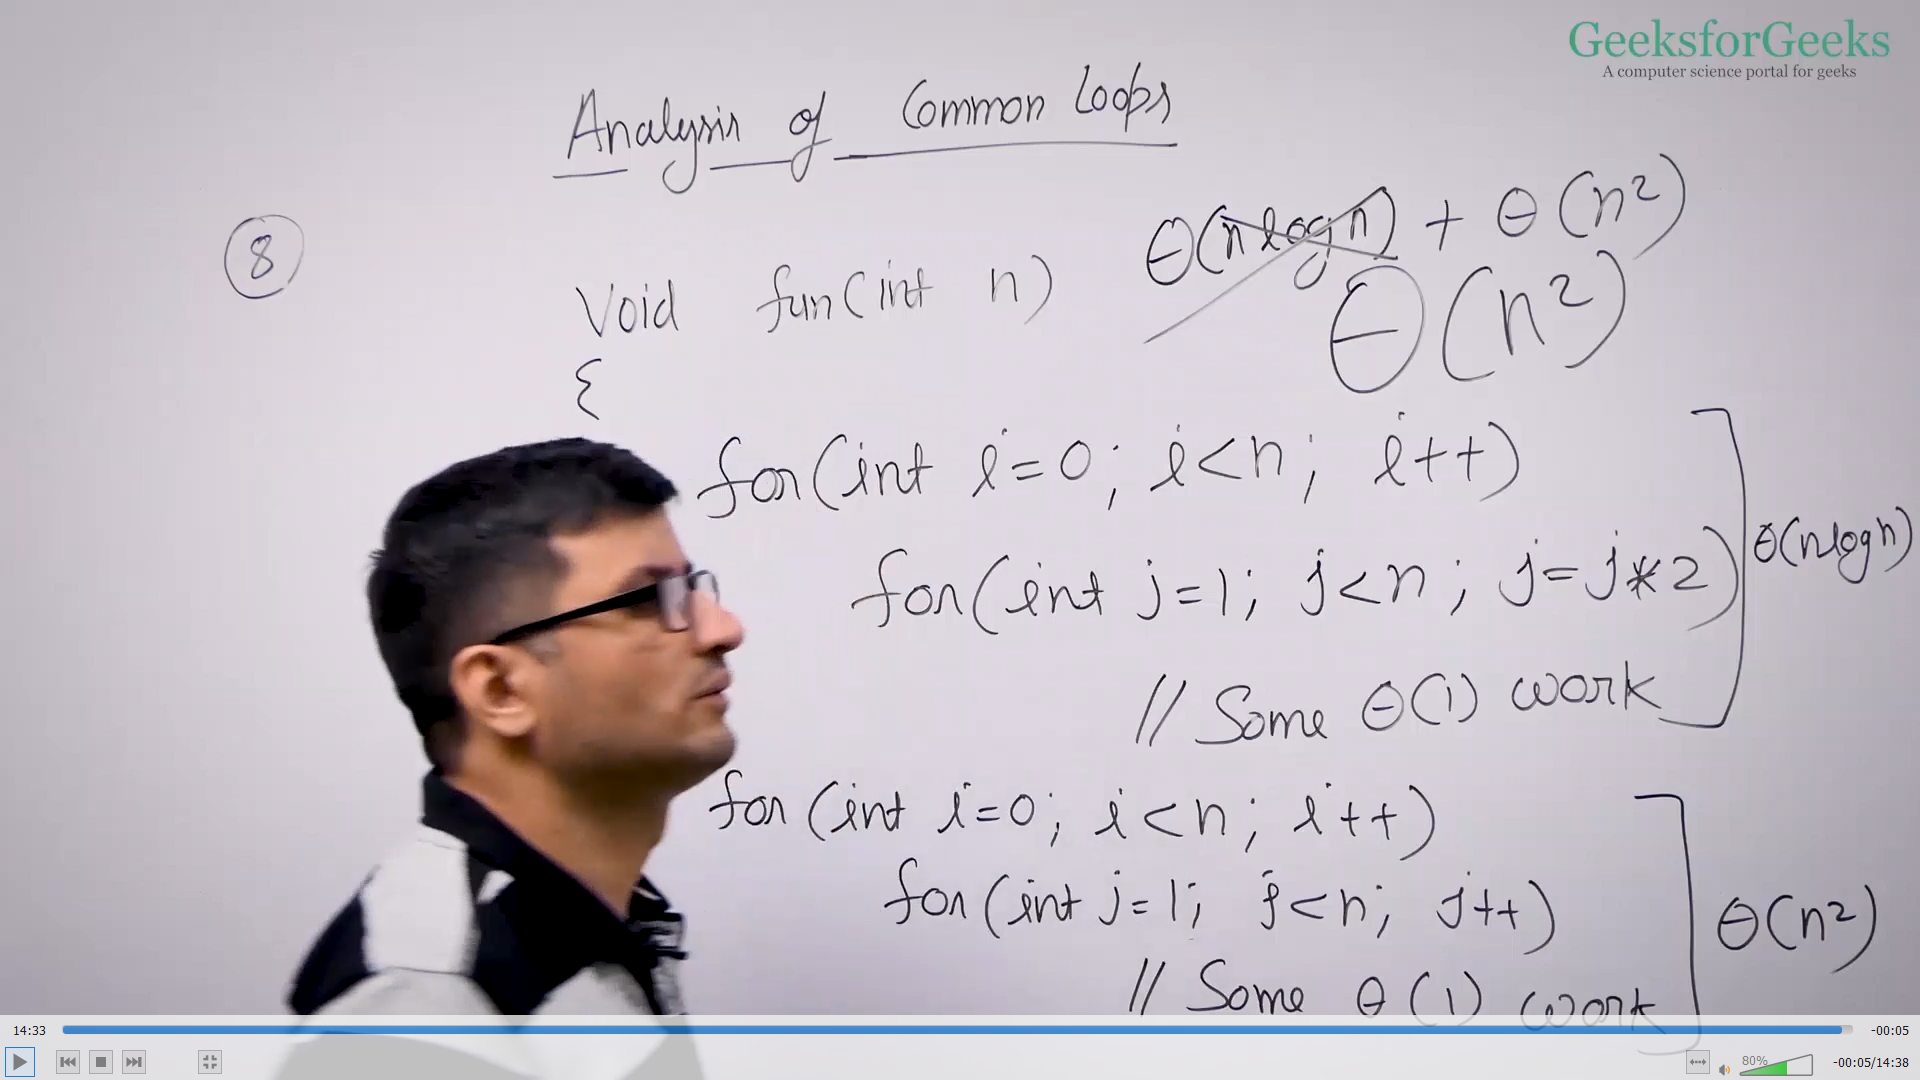 GeeksforGeeks
A computer science portal for geeks
Analysis of Common Loops
8
θ(n log n) + θ(n²)
θ(n²)
Void fun(int n)
{
for(int i=0; i<n; i++)
for(int j=1; j<n; j=j*2)
θ(nlogn)
// Some θ(1) work
for(int i=0; i<n; i++)
for(int j=1; j<n; j++)
θ(n²)
// Some θ(1) work
14:33
-00:05
80%
-00:05/14:38